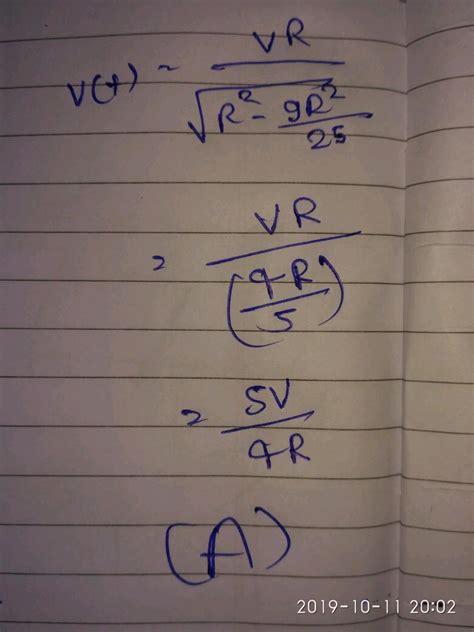 V(t) = VR / √(R² - 9R²/25)
= VR / (4R/5)
= 5V / 4R
(A)
2019-10-11 20:02